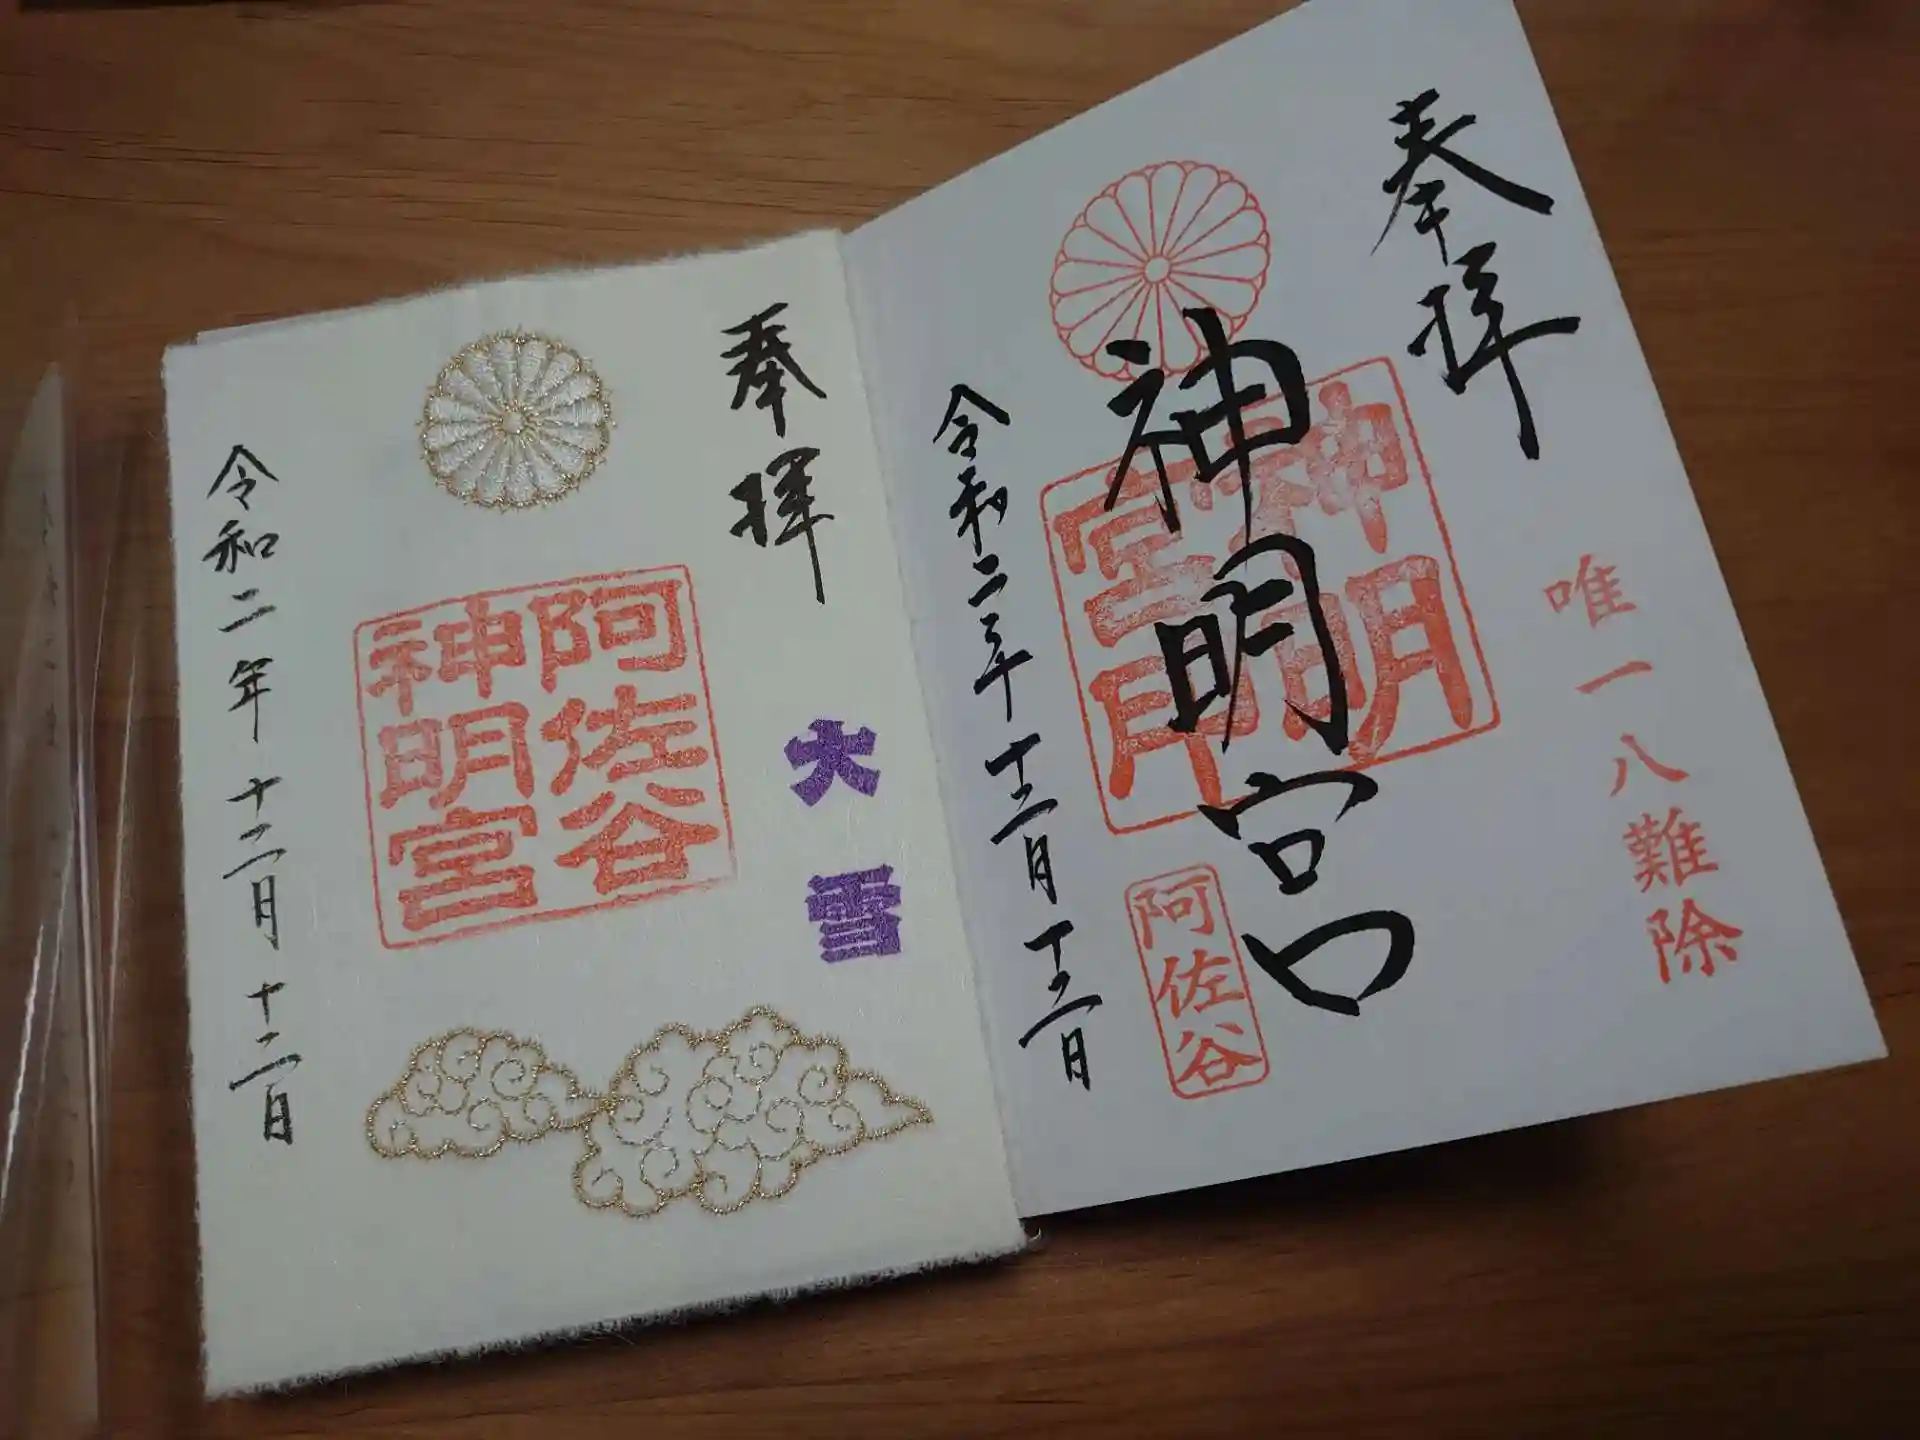 奉拝
唯一八難除
神明宮
神明宮印
阿佐谷
令和二年十二月十二日
奉拝
大雪
阿佐谷神明宮
令和二年十二月十二日